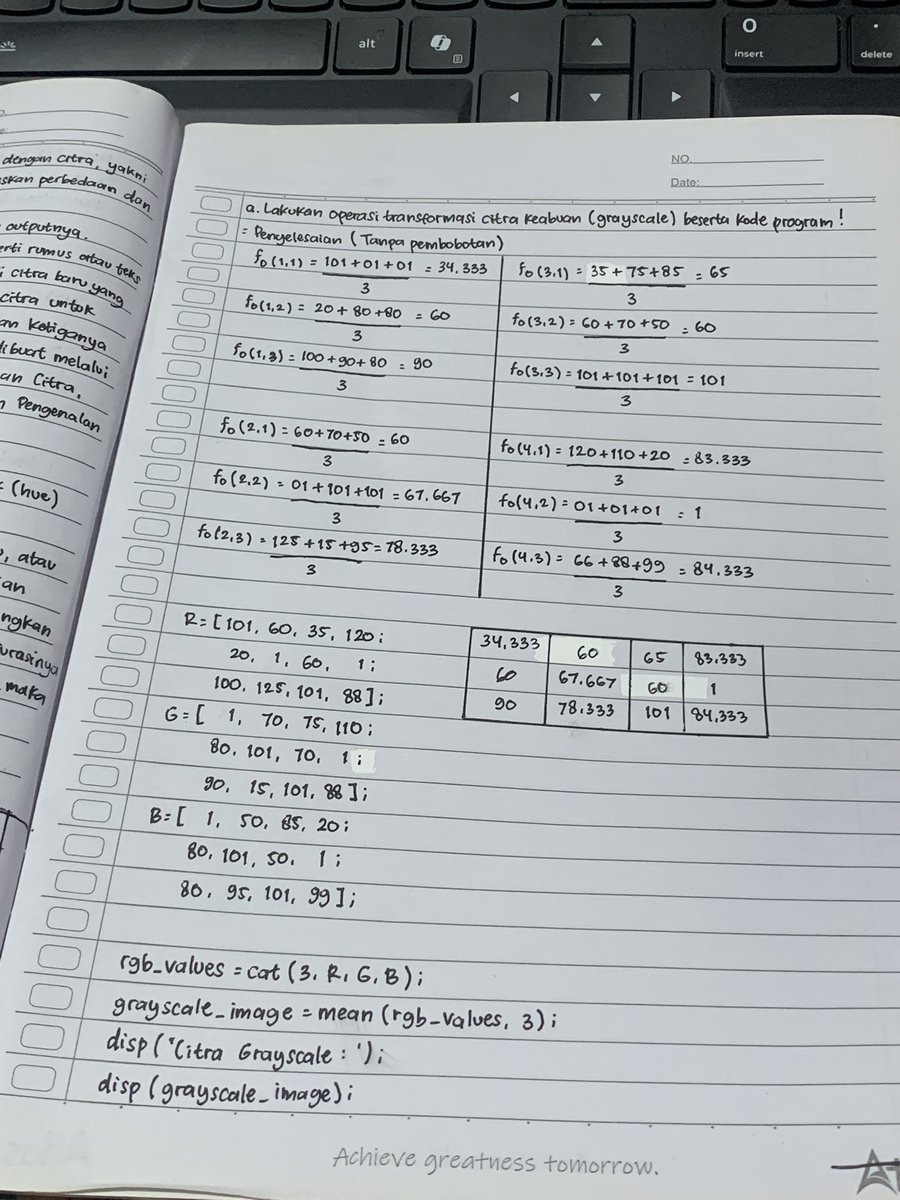 alt
insert
delete
dengan citra, yakni
skan perbedaan dan
outputnya.
erti rumus atau teks
i citra baru yang
citra untuk
an ketiganya
ibuat melalui
an Citra,
n Pengenalan
(hue)
, atau
an
ngkan
urasinya
maka
NO.
Date:
a. Lakukan operasi transformasi citra keabuan (grayscale) beserta kode program!
= Penyelesaian (Tanpa pembobotan)
fo(1,1) = 101+01+01 = 34.333
3
fo(1,2) = 20+80+80 = 60
3
fo(1,3) = 100+90+80 = 90
3
fo(2,1) = 60+70+50 = 60
3
fo(2,2) = 01+101+101 = 67.667
3
fo(2,3) = 125+15+95 = 78.333
3
fo(3,1) = 35+75+85 = 65
3
fo(3,2) = 60+70+50 = 60
3
fo(3,3) = 101+101+101 = 101
3
fo(4,1) = 120+110+20 = 83.333
3
fo(4,2) = 01+01+01 = 1
3
fo(4,3) = 66+88+99 = 84.333
3
R=[101, 60, 35, 120;
20, 1, 60, 1;
100, 125, 101, 88];
G=[ 1, 70, 75, 110;
80, 101, 70, 1;
90, 15, 101, 88];
B=[ 1, 50, 85, 20;
80, 101, 50, 1;
80, 95, 101, 99];
34,333 60 65 83.333
60 67.667 60 1
90 78.333 101 84.333
rgb_values = cat (3, R, G, B);
grayscale_image = mean (rgb_values, 3);
disp ('Citra Grayscale : ');
disp (grayscale_image);
Achieve greatness tomorrow.